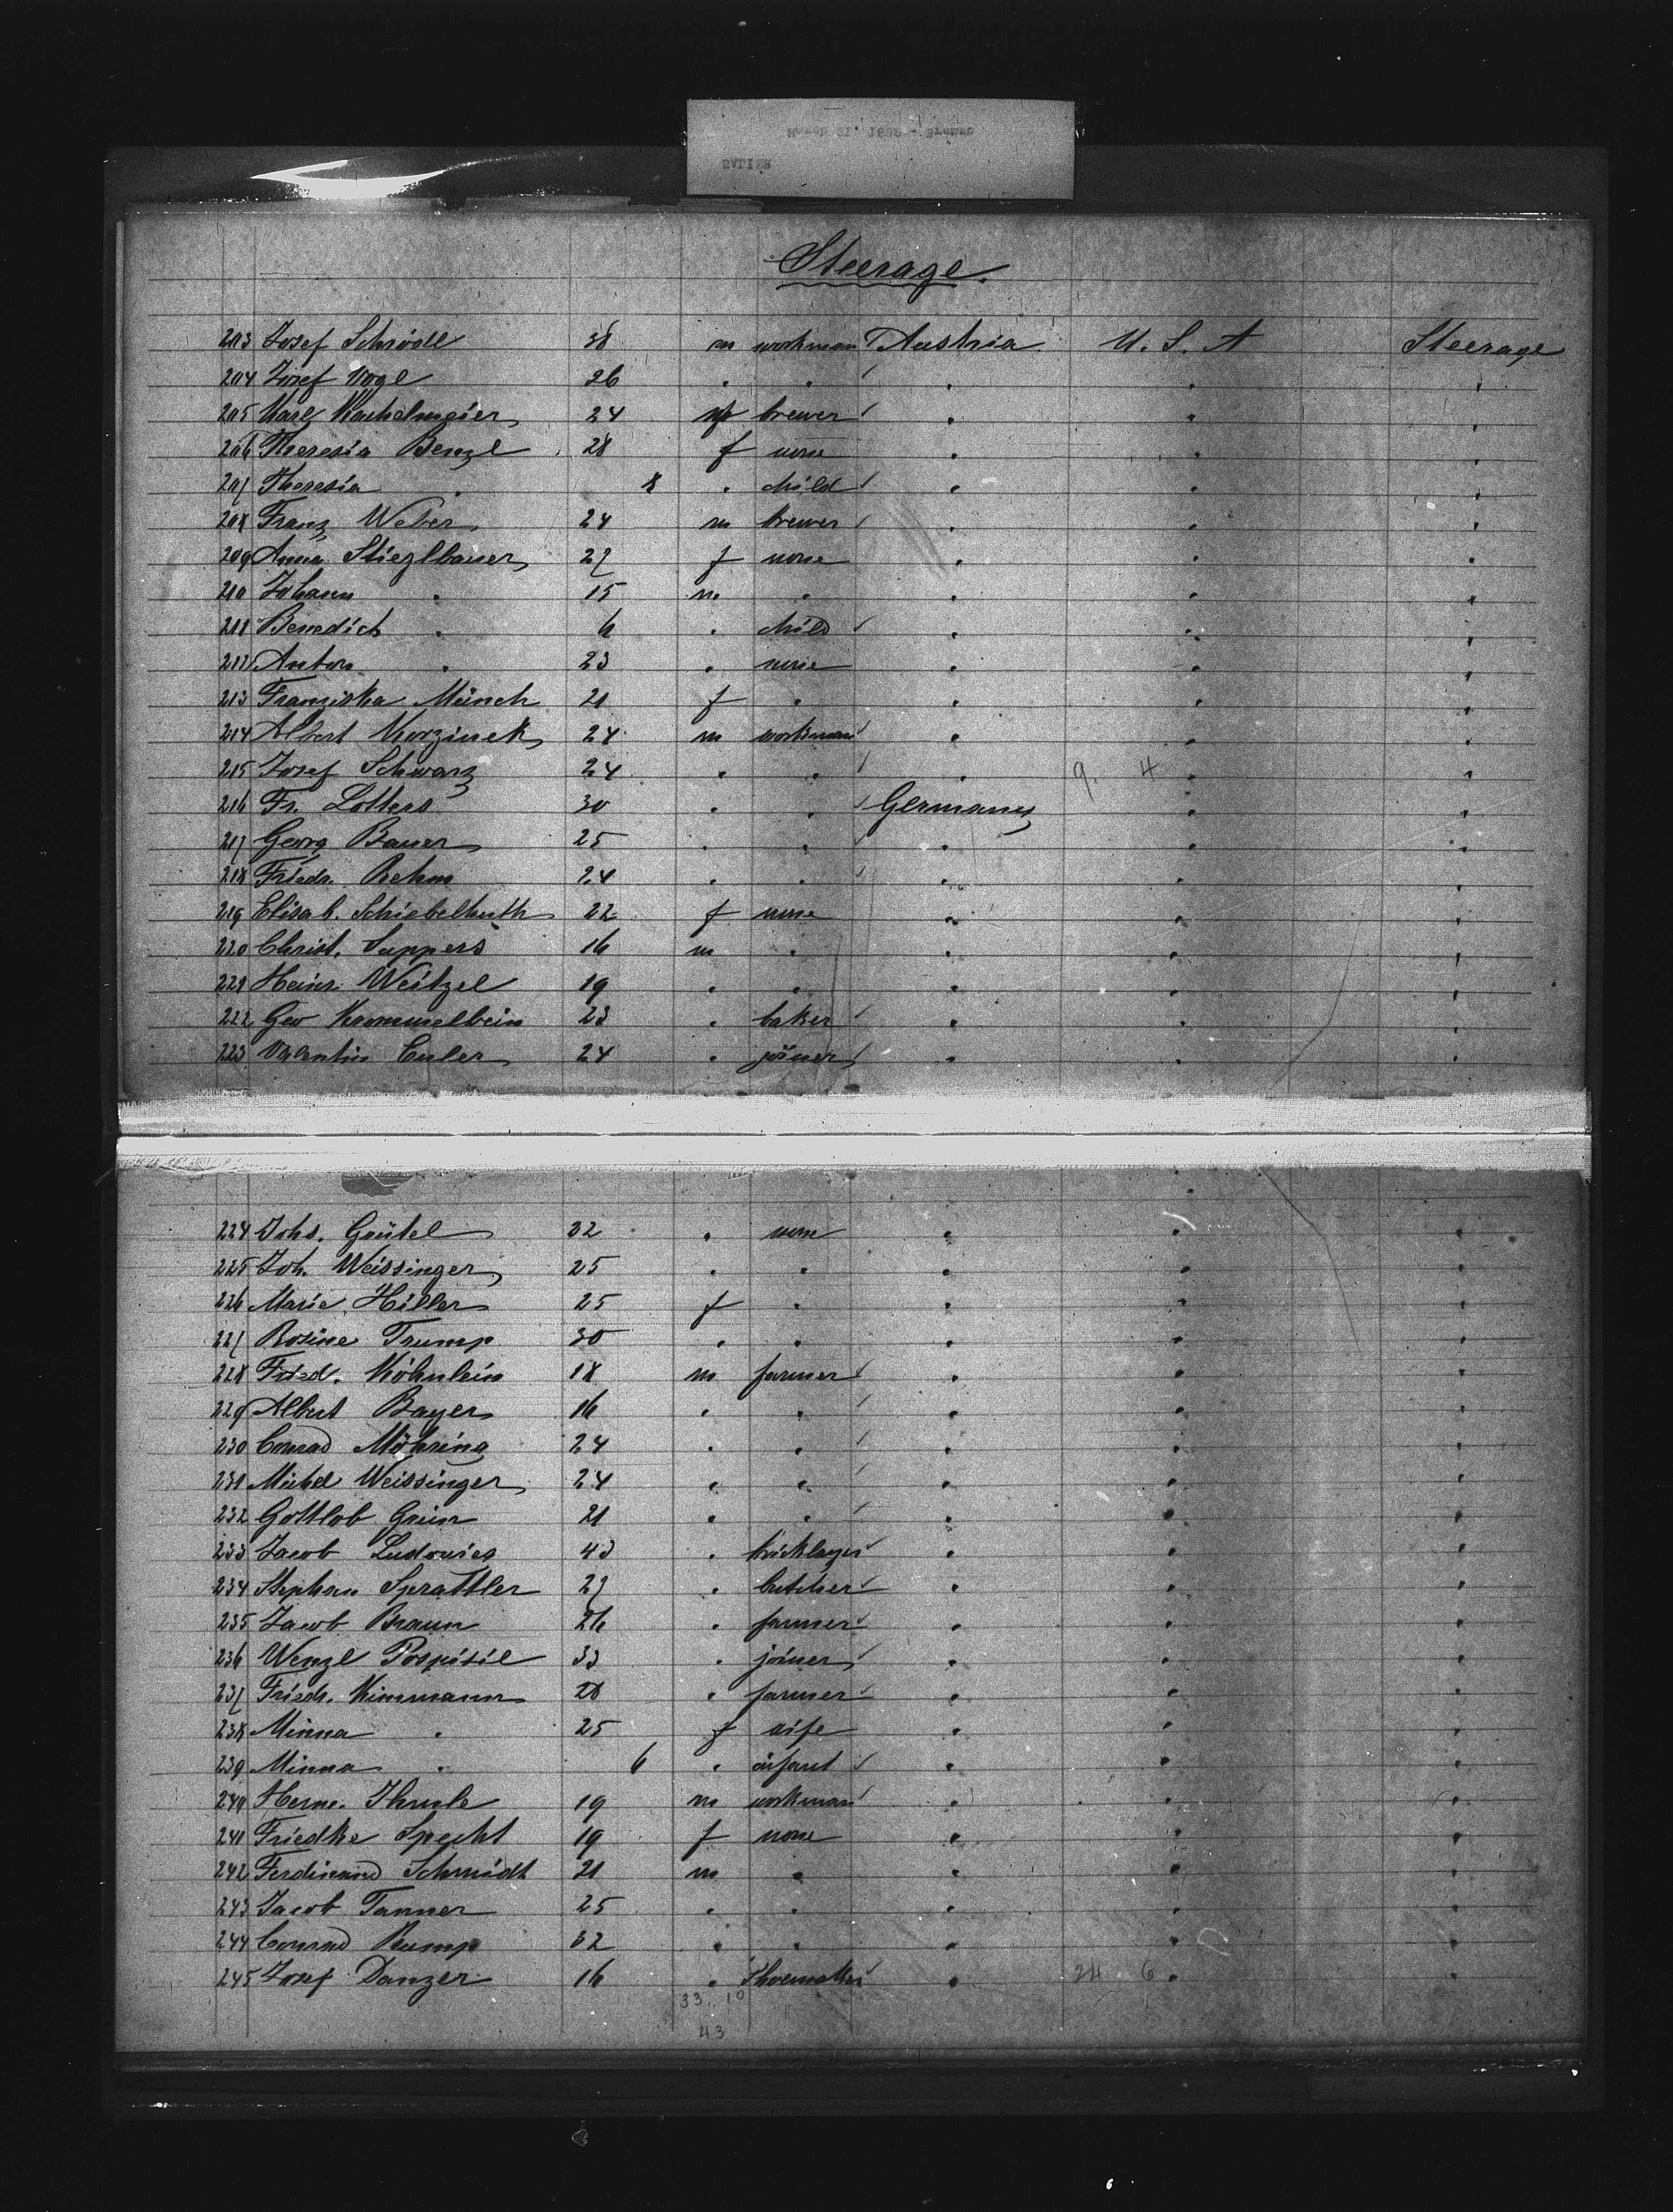 Steerage.
203 Josef Schrödl 38 m workman Austria U. S. A Steerage
204 Josef Vogl 26 " " " " "
205 Karl Kachelmeier 24 brewer " " "
206 Theresia Benzl 28 f none " " "
207 Theresia " 8 " child " " "
208 Franz Weber 24 m brewer " " "
209 Anna Stiezlbauer 27 f none " " "
210 Johann " 15 m " " " "
211 Benedict " 6 " child " " "
212 Anton " 23 " none " " "
213 Franziska Münch 21 f " " " "
214 Albert Korzinek 24 m workman " " "
215 Josef Schwarz 24 " " " 9. 4 " "
216 Fr. Lotters 30 " " Germany " "
217 Georg Bauer 25 " " " " "
218 Friedr. Rehm 24 " " " " "
219 Elisab. Schiebelhuth 22 f none " " "
220 Christ. Suppers 16 m " " " "
221 Heinr. Weitzel 19 " " " " "
222 Geo Krommelbein 23 " baker " " "
223 Valentin Euler 24 " joiner " " "
224 Johs. Grütel 32 " none " " "
225 Joh. Weissinger 25 " " " " "
226 Marie Hiller 25 f " " " "
227 Rosine Trump 30 " " " " "
228 Friedr. Köhnlein 18 m farmer " " "
229 Albert Bayer 16 " " " " "
230 Conrad Möhring 24 " " " " "
231 Michel Weissinger 24 " " " " "
232 Gottlob Grün 21 " " " " "
233 Jacob Ludovici 43 " bricklayer " " "
234 Stephan Sprattler 27 " butcher " " "
235 Jacob Braun 26 " farmer " " "
236 Wenzl Pospisil 33 " joiner " " "
237 Friedr. Kimmann 28 " farmer " " "
238 Minna " 25 f wife " " "
239 Minna " 6 " infant " " "
240 Herm. Thule 19 m workman " " "
241 Friedke Specht 19 f none " " "
242 Ferdinand Schmidt 21 m " " " "
243 Jacob Tanner 25 " " " " "
244 Conrad Rump 32 " " " " "
245 Josef Danzer 16 " Shoemaker " 24 6 " "
33. 10
43